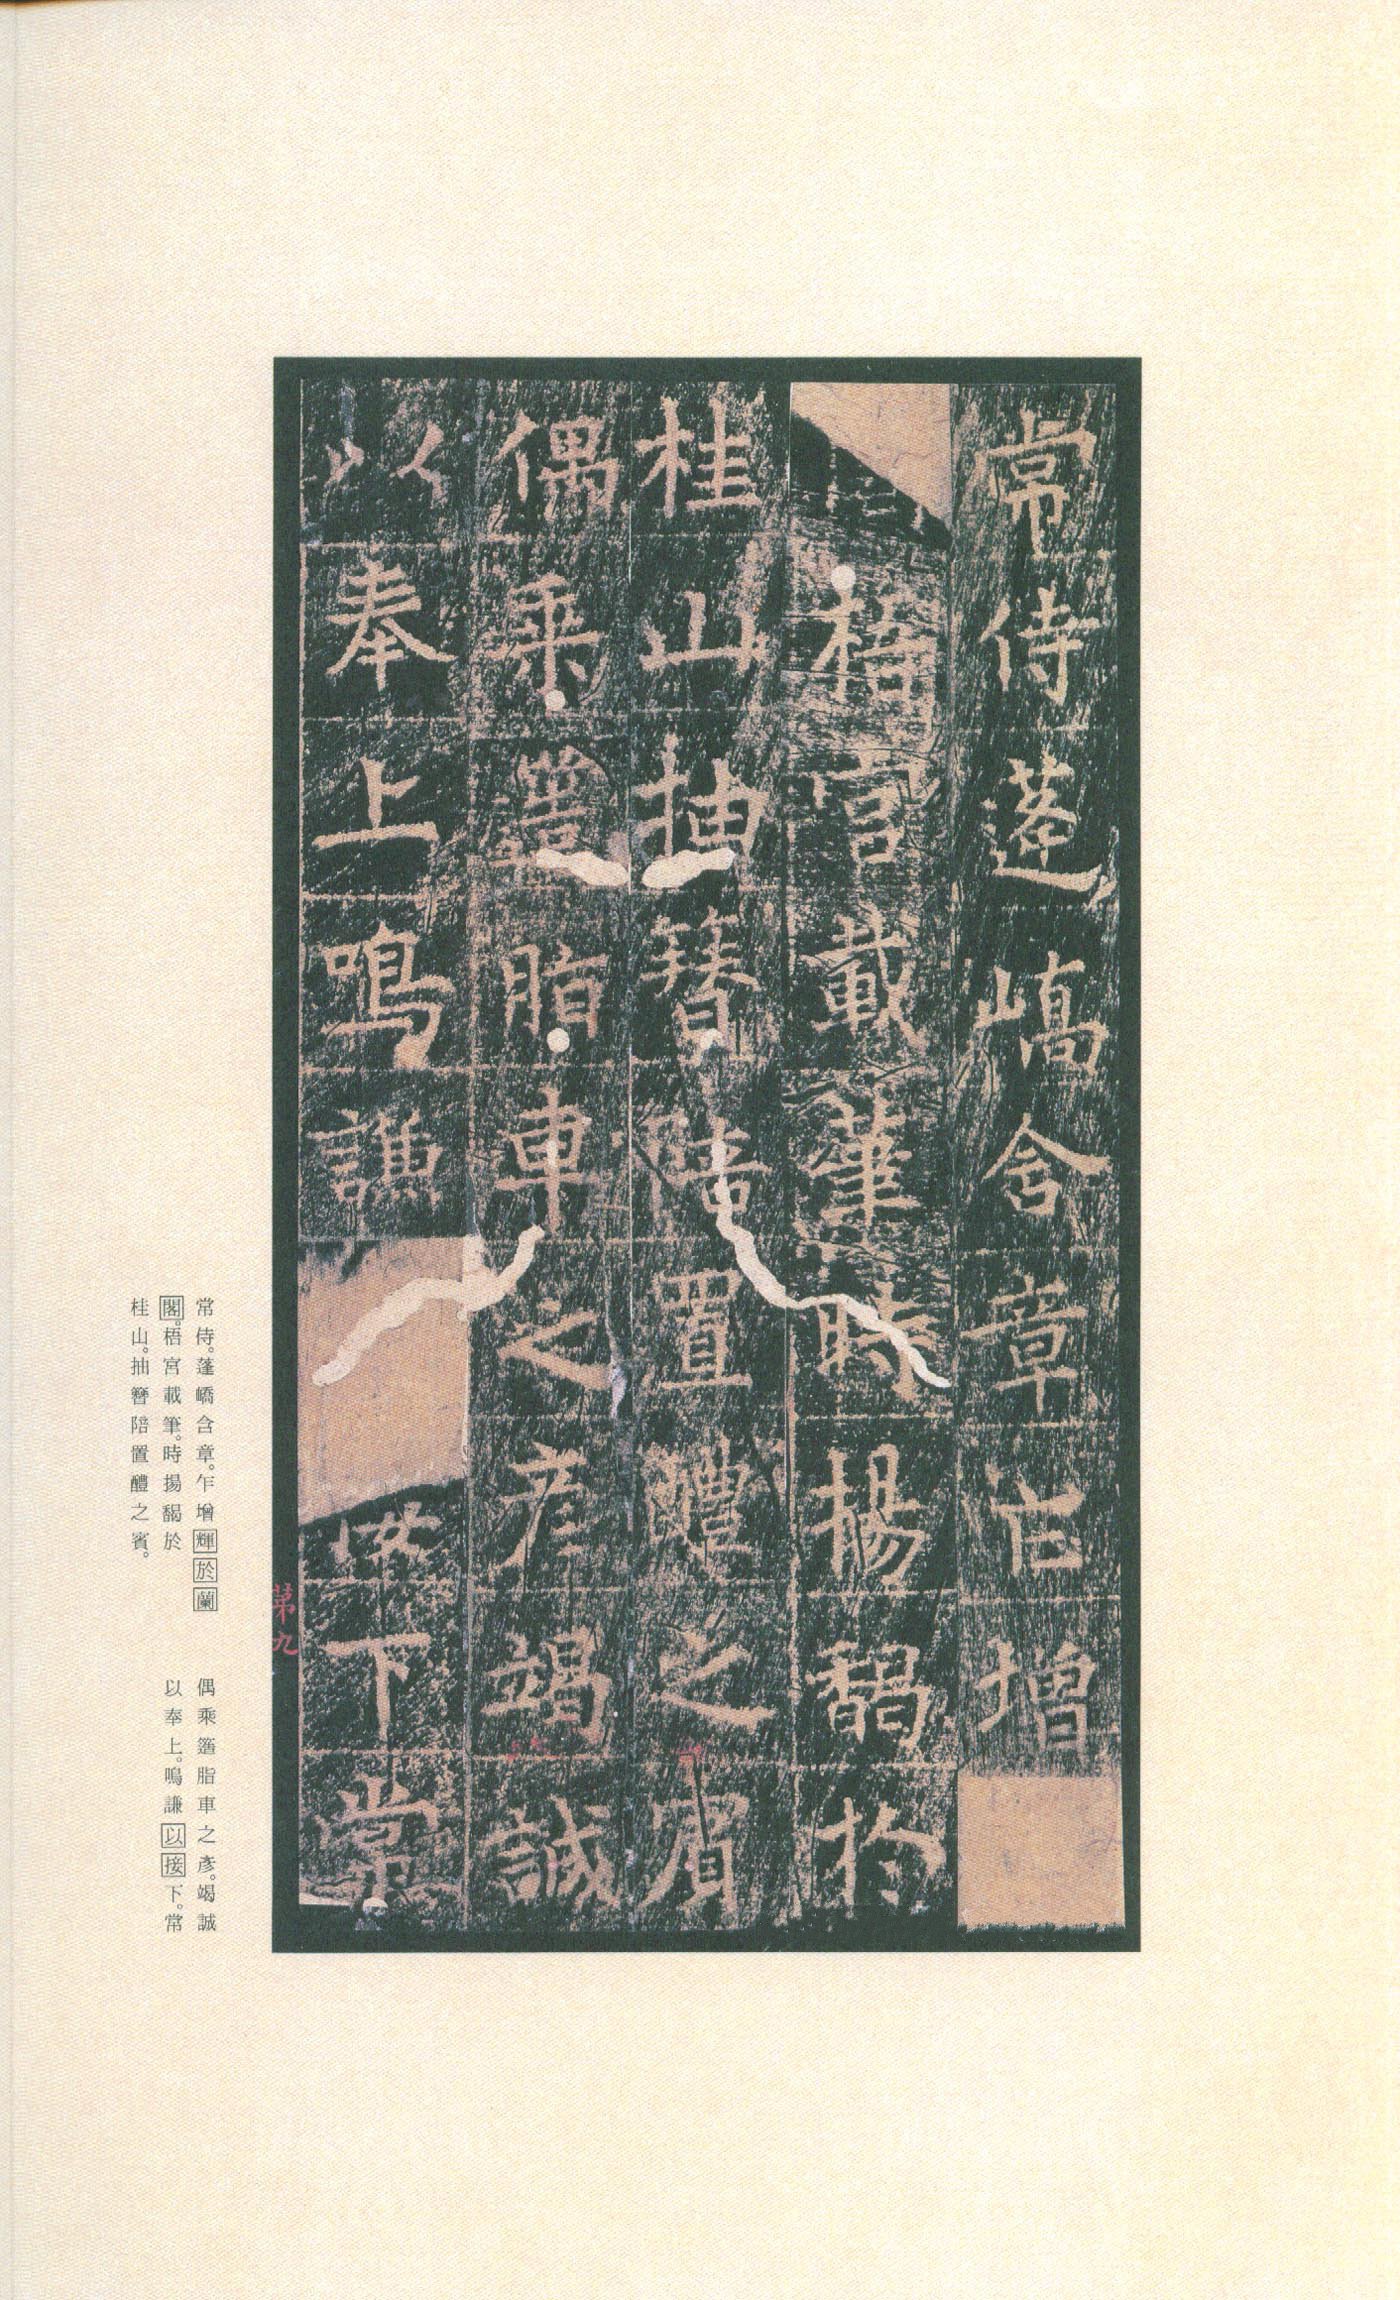 常侍蓬嶠含章乍增
梧宮載筆時揚馤於
桂山抽簪陪置醴之賓
偶乘簉脂車之彥竭誠
以奉上鳴謙接下常
第九
常侍。蓬嶠含章。乍增輝於蘭
閣。梧宮載筆。時揚馤於
桂山。抽簪陪置醴之賓。
偶乘簉脂車之彥。竭誠
以奉上。鳴謙以接下。常